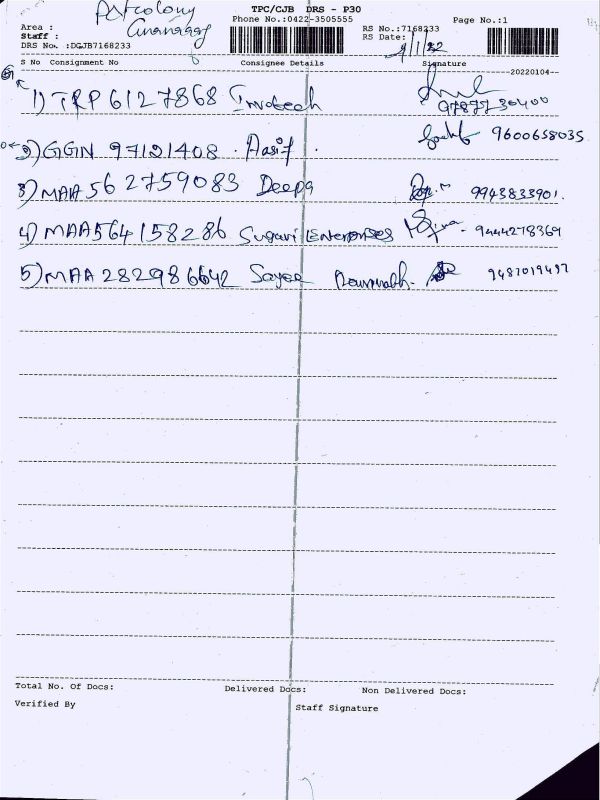 P&T colony
TPC/CJB DRS - P30
Phone No.:0422-3505555 Page No.:1
Area :
Staff :
RS No.:7168233
RS Date:
DRS No. :DGJB7168233
S No Consignment No Consignee Details Signature
20220104
1) TRP 6127868
2) GGN 97121408 Aasif 9600658035
3) MAA 562759083 Deepa 9943833901
4) MAA564158286 Sugavi Enterprises 9444278369
5) MAA 282986642 Sayee
Total No. Of Docs: Delivered Docs: Non Delivered Docs:
Verified By Staff Signature